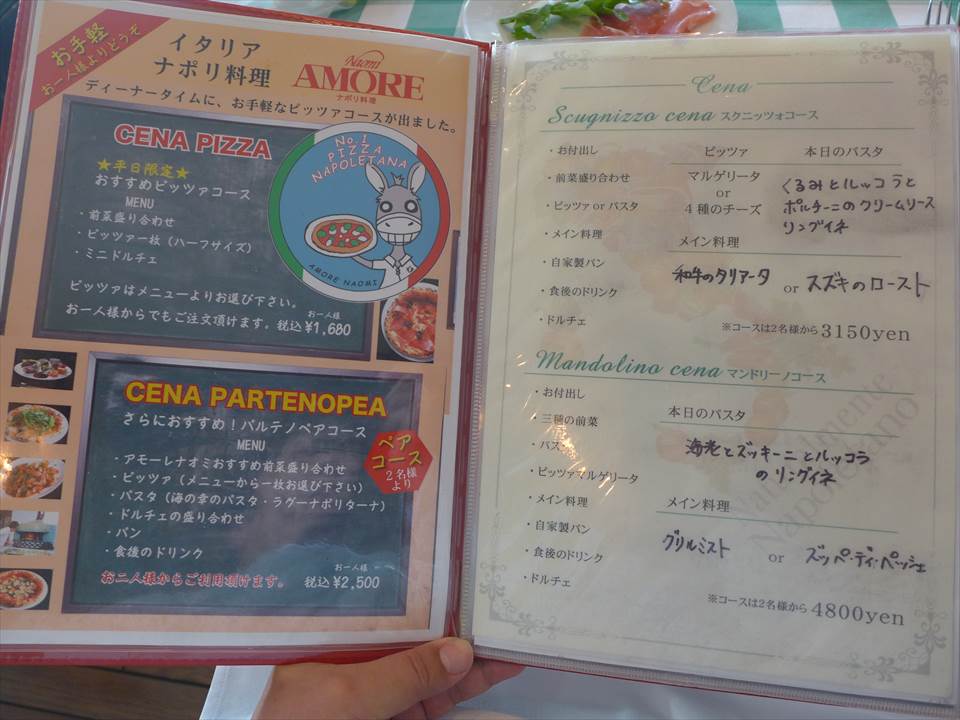 お手軽
お一人様よりどうぞ
イタリア
ナポリ料理
Naomi
AMORE
ナポリ料理
ディーナータイムに、お手軽なピッツァコースが出ました。
CENA PIZZA
★平日限定★
おすすめピッツァコース
MENU
・前菜盛り合わせ
・ピッツァ一枚（ハーフサイズ）
・ミニドルチェ
ピッツァはメニューよりお選び下さい。
お一人様からでもご注文頂けます。
お一人様
税込¥1,680
No.1
PIZZA
NAPOLETANA
AMORE NAOMI
CENA PARTENOPEA
さらにおすすめ！パルテノペアコース
MENU
・アモーレナオミおすすめ前菜盛り合わせ
・ピッツァ（メニューから一枚お選び下さい）
・パスタ（海の幸のパスタ・ラグーナポリターナ）
・ドルチェの盛り合わせ
・パン
・食後のドリンク
お二人様からご利用頂けます。
お一人様
税込¥2,500
ペア
コース
2名様
より
Cena
Scugnizzo cena スクニッツォコース
・お付出し
・前菜盛り合わせ
・ピッツァ or パスタ
・メイン料理
・自家製パン
・食後のドリンク
・ドルチェ
ピッツァ
マルゲリータ
or
4種のチーズ
本日のパスタ
くるみとルッコラと
ポルチーニのクリームソース
リングイネ
メイン料理
和牛のタリアータ or スズキのロースト
※コースは2名様から 3150yen
Mandolino cena マンドリーノコース
・お付出し
・三種の前菜
・パスタ
・ピッツァマルゲリータ
・メイン料理
・自家製パン
・食後のドリンク
・ドルチェ
本日のパスタ
海老とズッキーニとルッコラ
のリングイネ
メイン料理
グリルミスト or ズッペ・ディ・ペッシェ
※コースは2名様から 4800yen